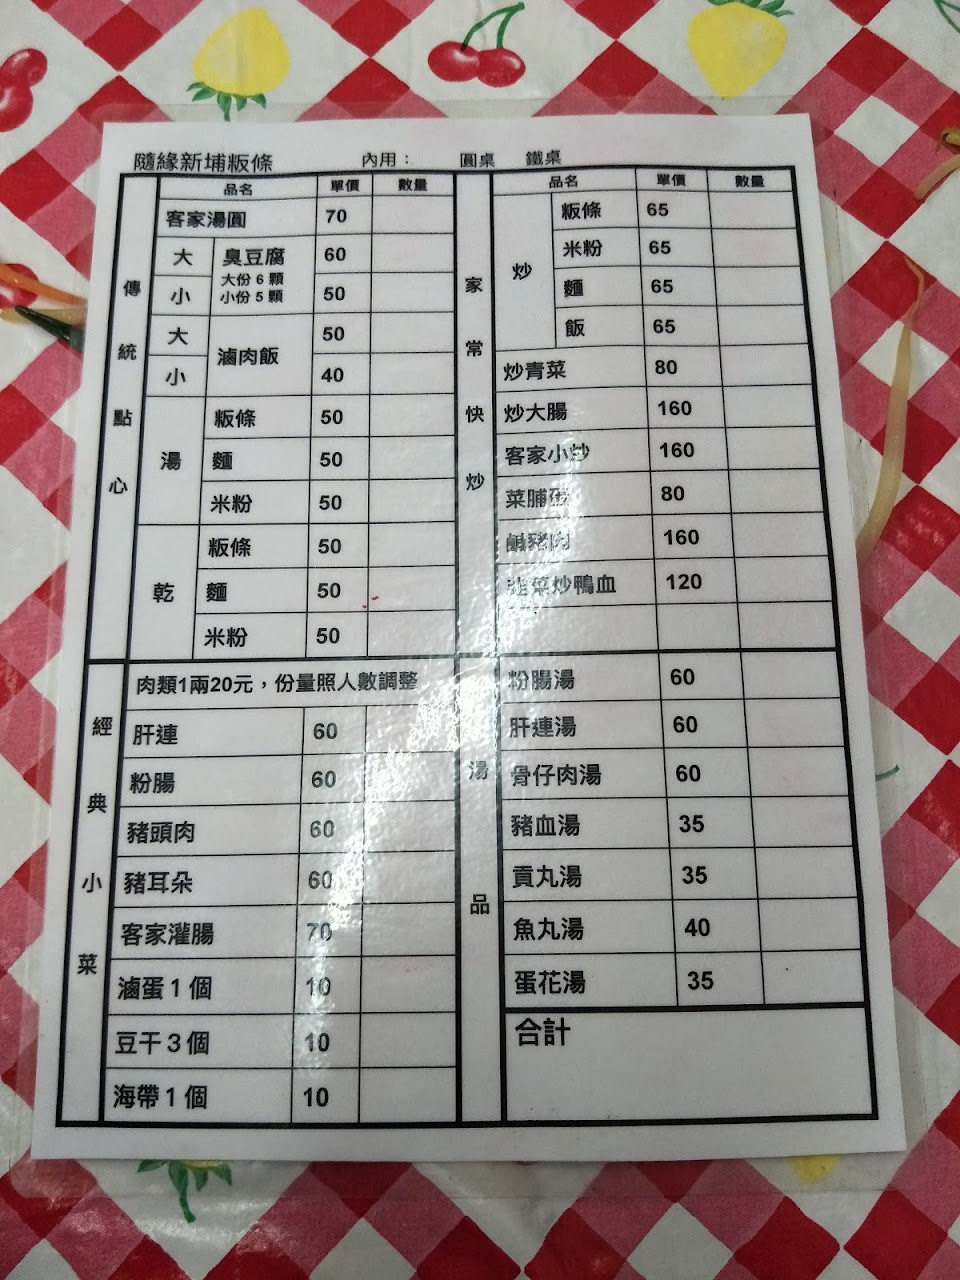 隨緣新埔粄條 內用： 圓桌 鐵桌
品名 單價 數量
傳統點心
客家湯圓 70
大 臭豆腐 60
大份 6 顆
小份 5 顆
小 50
大 滷肉飯 50
小 40
湯
粄條 50
麵 50
米粉 50
乾
粄條 50
麵 50
米粉 50
經典小菜
肉類1兩20元，份量照人數調整
肝連 60
粉腸 60
豬頭肉 60
豬耳朵 60
客家灌腸 70
滷蛋 1 個 10
豆干 3 個 10
海帶 1 個 10
品名 單價 數量
家常快炒
炒
粄條 65
米粉 65
麵 65
飯 65
炒青菜 80
炒大腸 160
客家小炒 160
菜脯蛋 80
鹹豬肉 160
韭菜炒鴨血 120
湯品
粉腸湯 60
肝連湯 60
骨仔肉湯 60
豬血湯 35
貢丸湯 35
魚丸湯 40
蛋花湯 35
合計